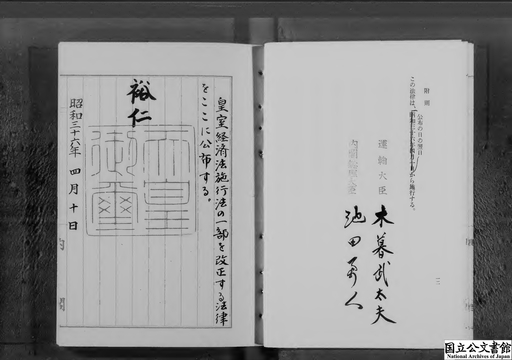 附則
この法律は、公布の日の翌日
から施行する。
運輸大臣 木暮武太夫
内閣総理大臣 池田勇人
皇室経済法施行法の一部を改正する法律
をここに公布する。
裕仁
天皇御璽
昭和三十六年四月十日
国立公文書館
National Archives of Japan